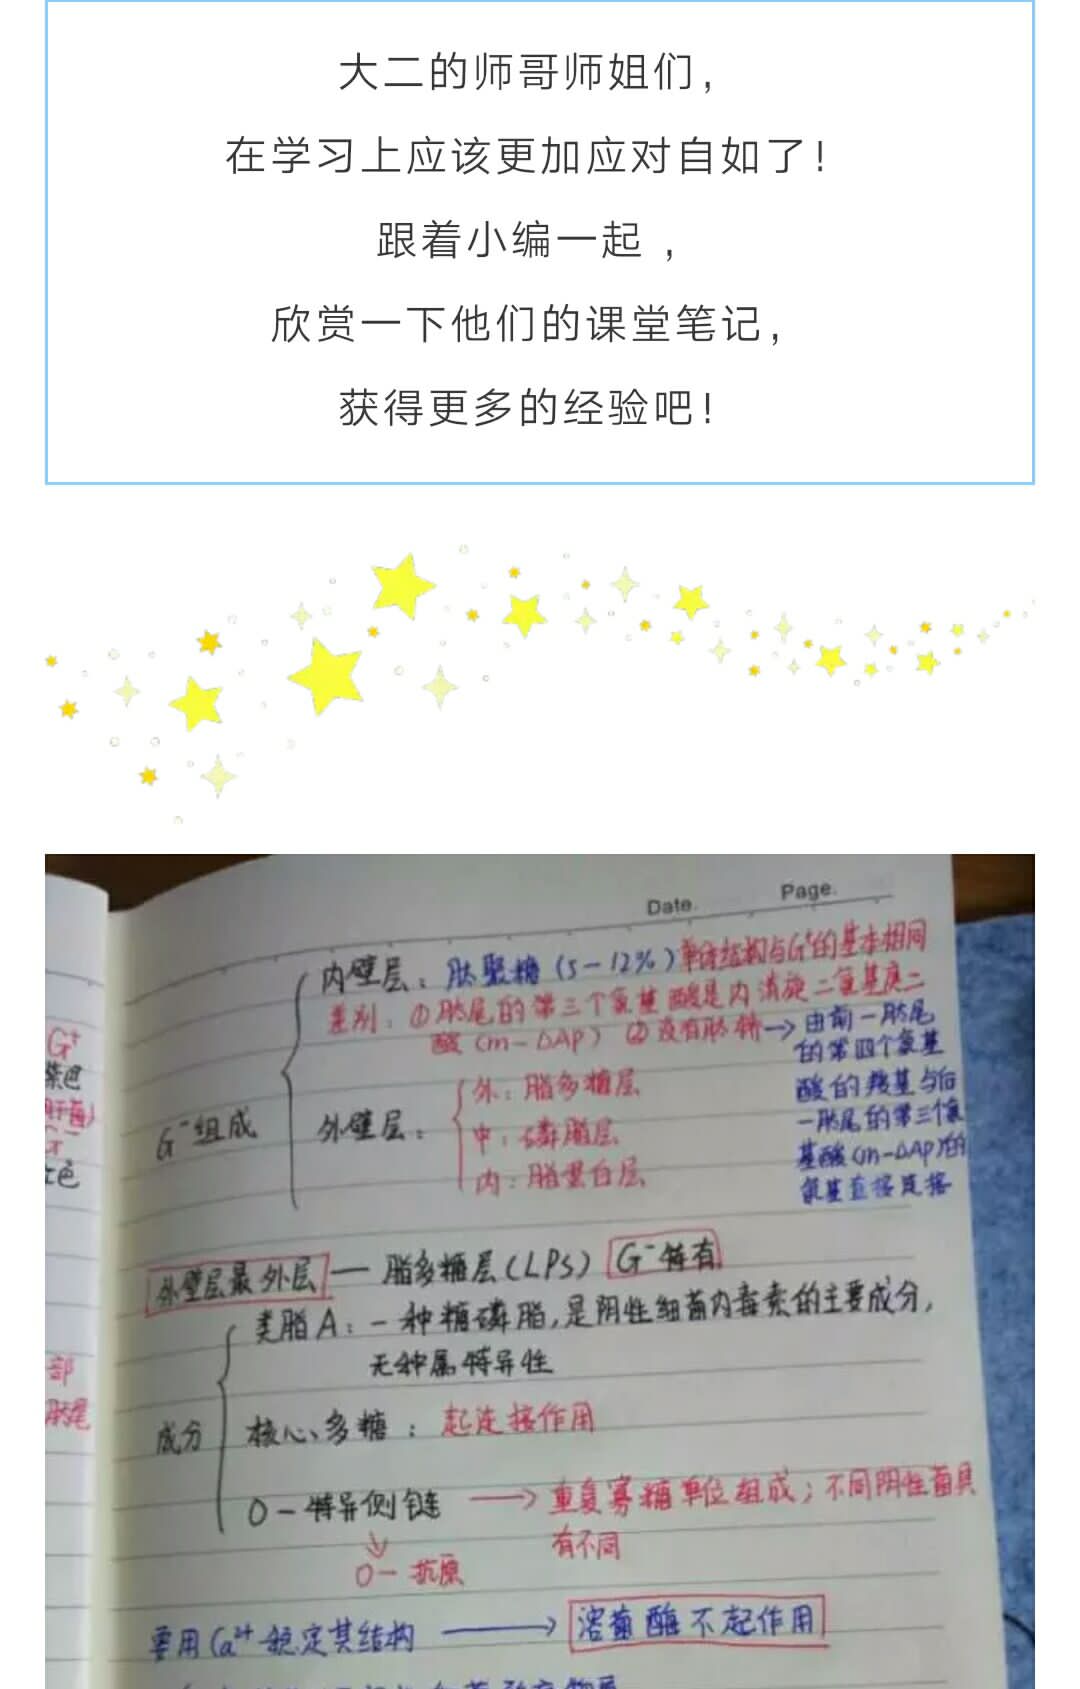 大二的师哥师姐们，
在学习上应该更加应对自如了！
跟着小编一起，
欣赏一下他们的课堂笔记，
获得更多的经验吧！
Date. Page.
内壁层：肽聚糖（5-12%）单体结构与G⁺的基本相同
差别：①肽尾的第三个氨基酸是内消旋二氨基庚二
酸（m-DAP）②没有肽桥→由前一肽尾
的第四个氨基
酸的羧基与后
一肽尾的第三个氨
基酸(m-DAP)的
氨基直接连接
G⁻组成
外壁层：
外：脂多糖层
中：磷脂层
内：脂蛋白层
外壁层最外层—脂多糖层(LPS) G⁻特有
类脂A：一种糖磷脂，是阴性细菌内毒素的主要成分，
无种属特异性
成分
核心多糖：起连接作用
O-特异侧链→重复寡糖单位组成；不同阴性菌具
有不同
O-抗原
要用Ca²⁺稳定其结构→溶菌酶不起作用
G⁺
紫色
G⁻
红色
部
肽尾